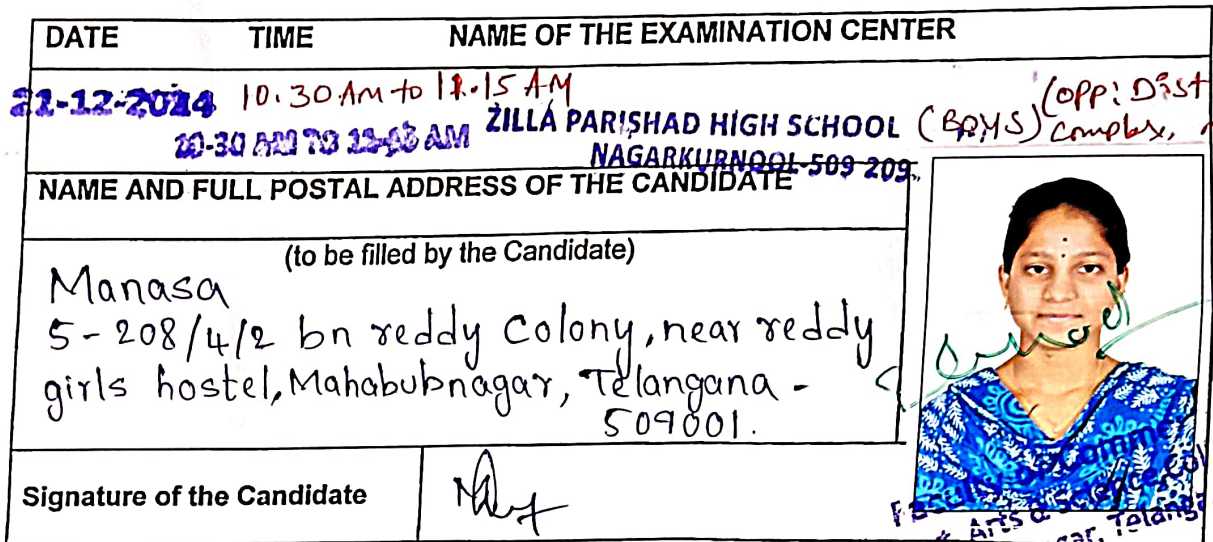 DATE TIME NAME OF THE EXAMINATION CENTER
21-12-2024 10.30 Am to 11.15 AM
10-30 AM TO AM ZILLA PARISHAD HIGH SCHOOL (BOYS) (opp: Dist complex,
NAGARKURNOOL-509 209.
NAME AND FULL POSTAL ADDRESS OF THE CANDIDATE
(to be filled by the Candidate)
Manasa
5-208/4/2 bn reddy Colony, near reddy
girls hostel, Mahabubnagar, Telangana -
509001.
Signature of the Candidate
Arts & Science Col